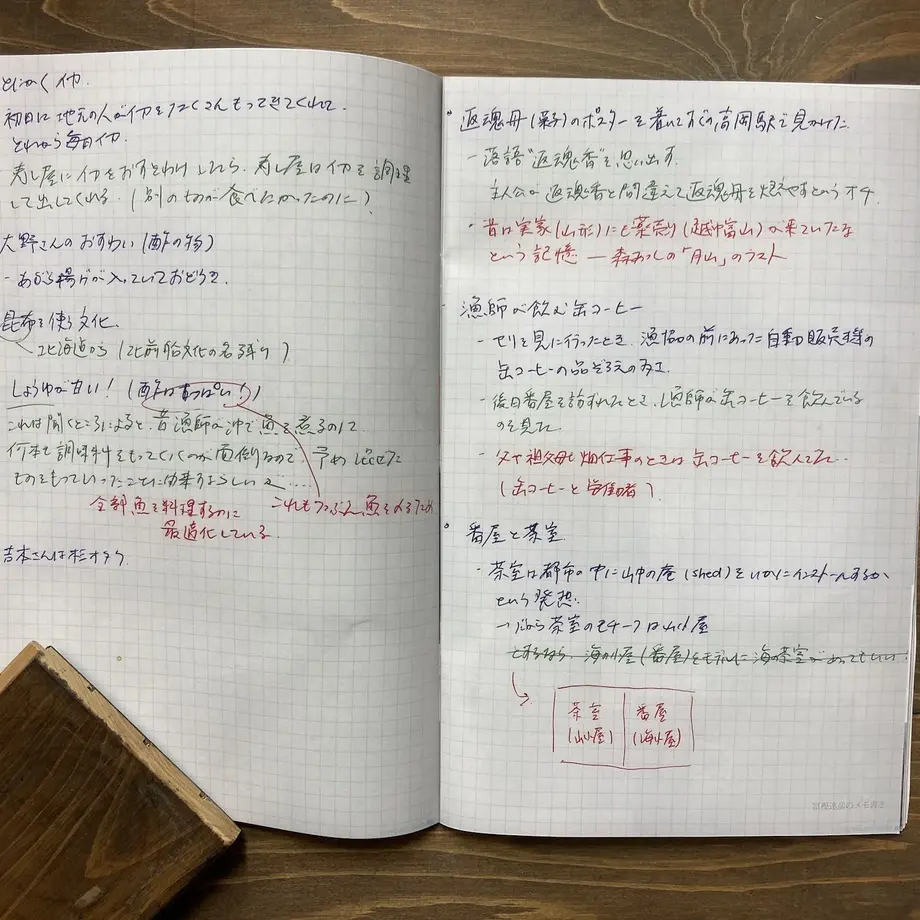 とにかくイカ.
初日に地元の人がイカをたくさんもってきてくれて.
それから毎日イカ.
寿し屋にイカをおすそわけしたら、寿し屋はイカを調理
して出してくれる. (別のものが食べたかったのに)
大野さんのおすわい (酢の物)
- あぶら揚げが入っていておどろき.
昆布を使う文化.
北海道から (北前船文化の名残り)
しょうゆが甘い! (酢はすっぱい!)
これは聞くところによると、昔漁師が沖で魚を煮るのに
何本も調味料をもっていくのが面倒なので、予め
ものをもっていったことに由来するらしい
全部魚を料理するのに
最適化している.
これもたぶん魚を〆るため
吉本さんは杉オタク
・返魂丹(薬子)のポスターを着いてすぐの高岡駅で見かけた
- 落語“返魂香”を思い出す.
主人公が返魂香と間違えて返魂丹を燃やすというオチ
・昔は実家(山形)にも薬売り(越中富山)が来ていたな
という記憶 ― 森あつしの「月山」のラスト
・漁師が飲む缶コーヒー
- セリを見に行ったとき、漁協の前にあった自動販売機の
缶コーヒーの品ぞろえの
- 後日番屋を訪ずれたとき、漁師が缶コーヒーを飲んでいる
のを見た
- 父や祖父も畑仕事のときは缶コーヒーを飲んでた..
(缶コーヒーと労働者).
・番屋と茶室.
・茶室は都市の中に山中の庵(shed)をいかにインストールするか、
という発想.
→だから茶室のモチーフは山小屋
とするなら、海の小屋(番屋)をモデルに海の茶室があってもいい.
茶室
(山小屋)
番屋
(海小屋)